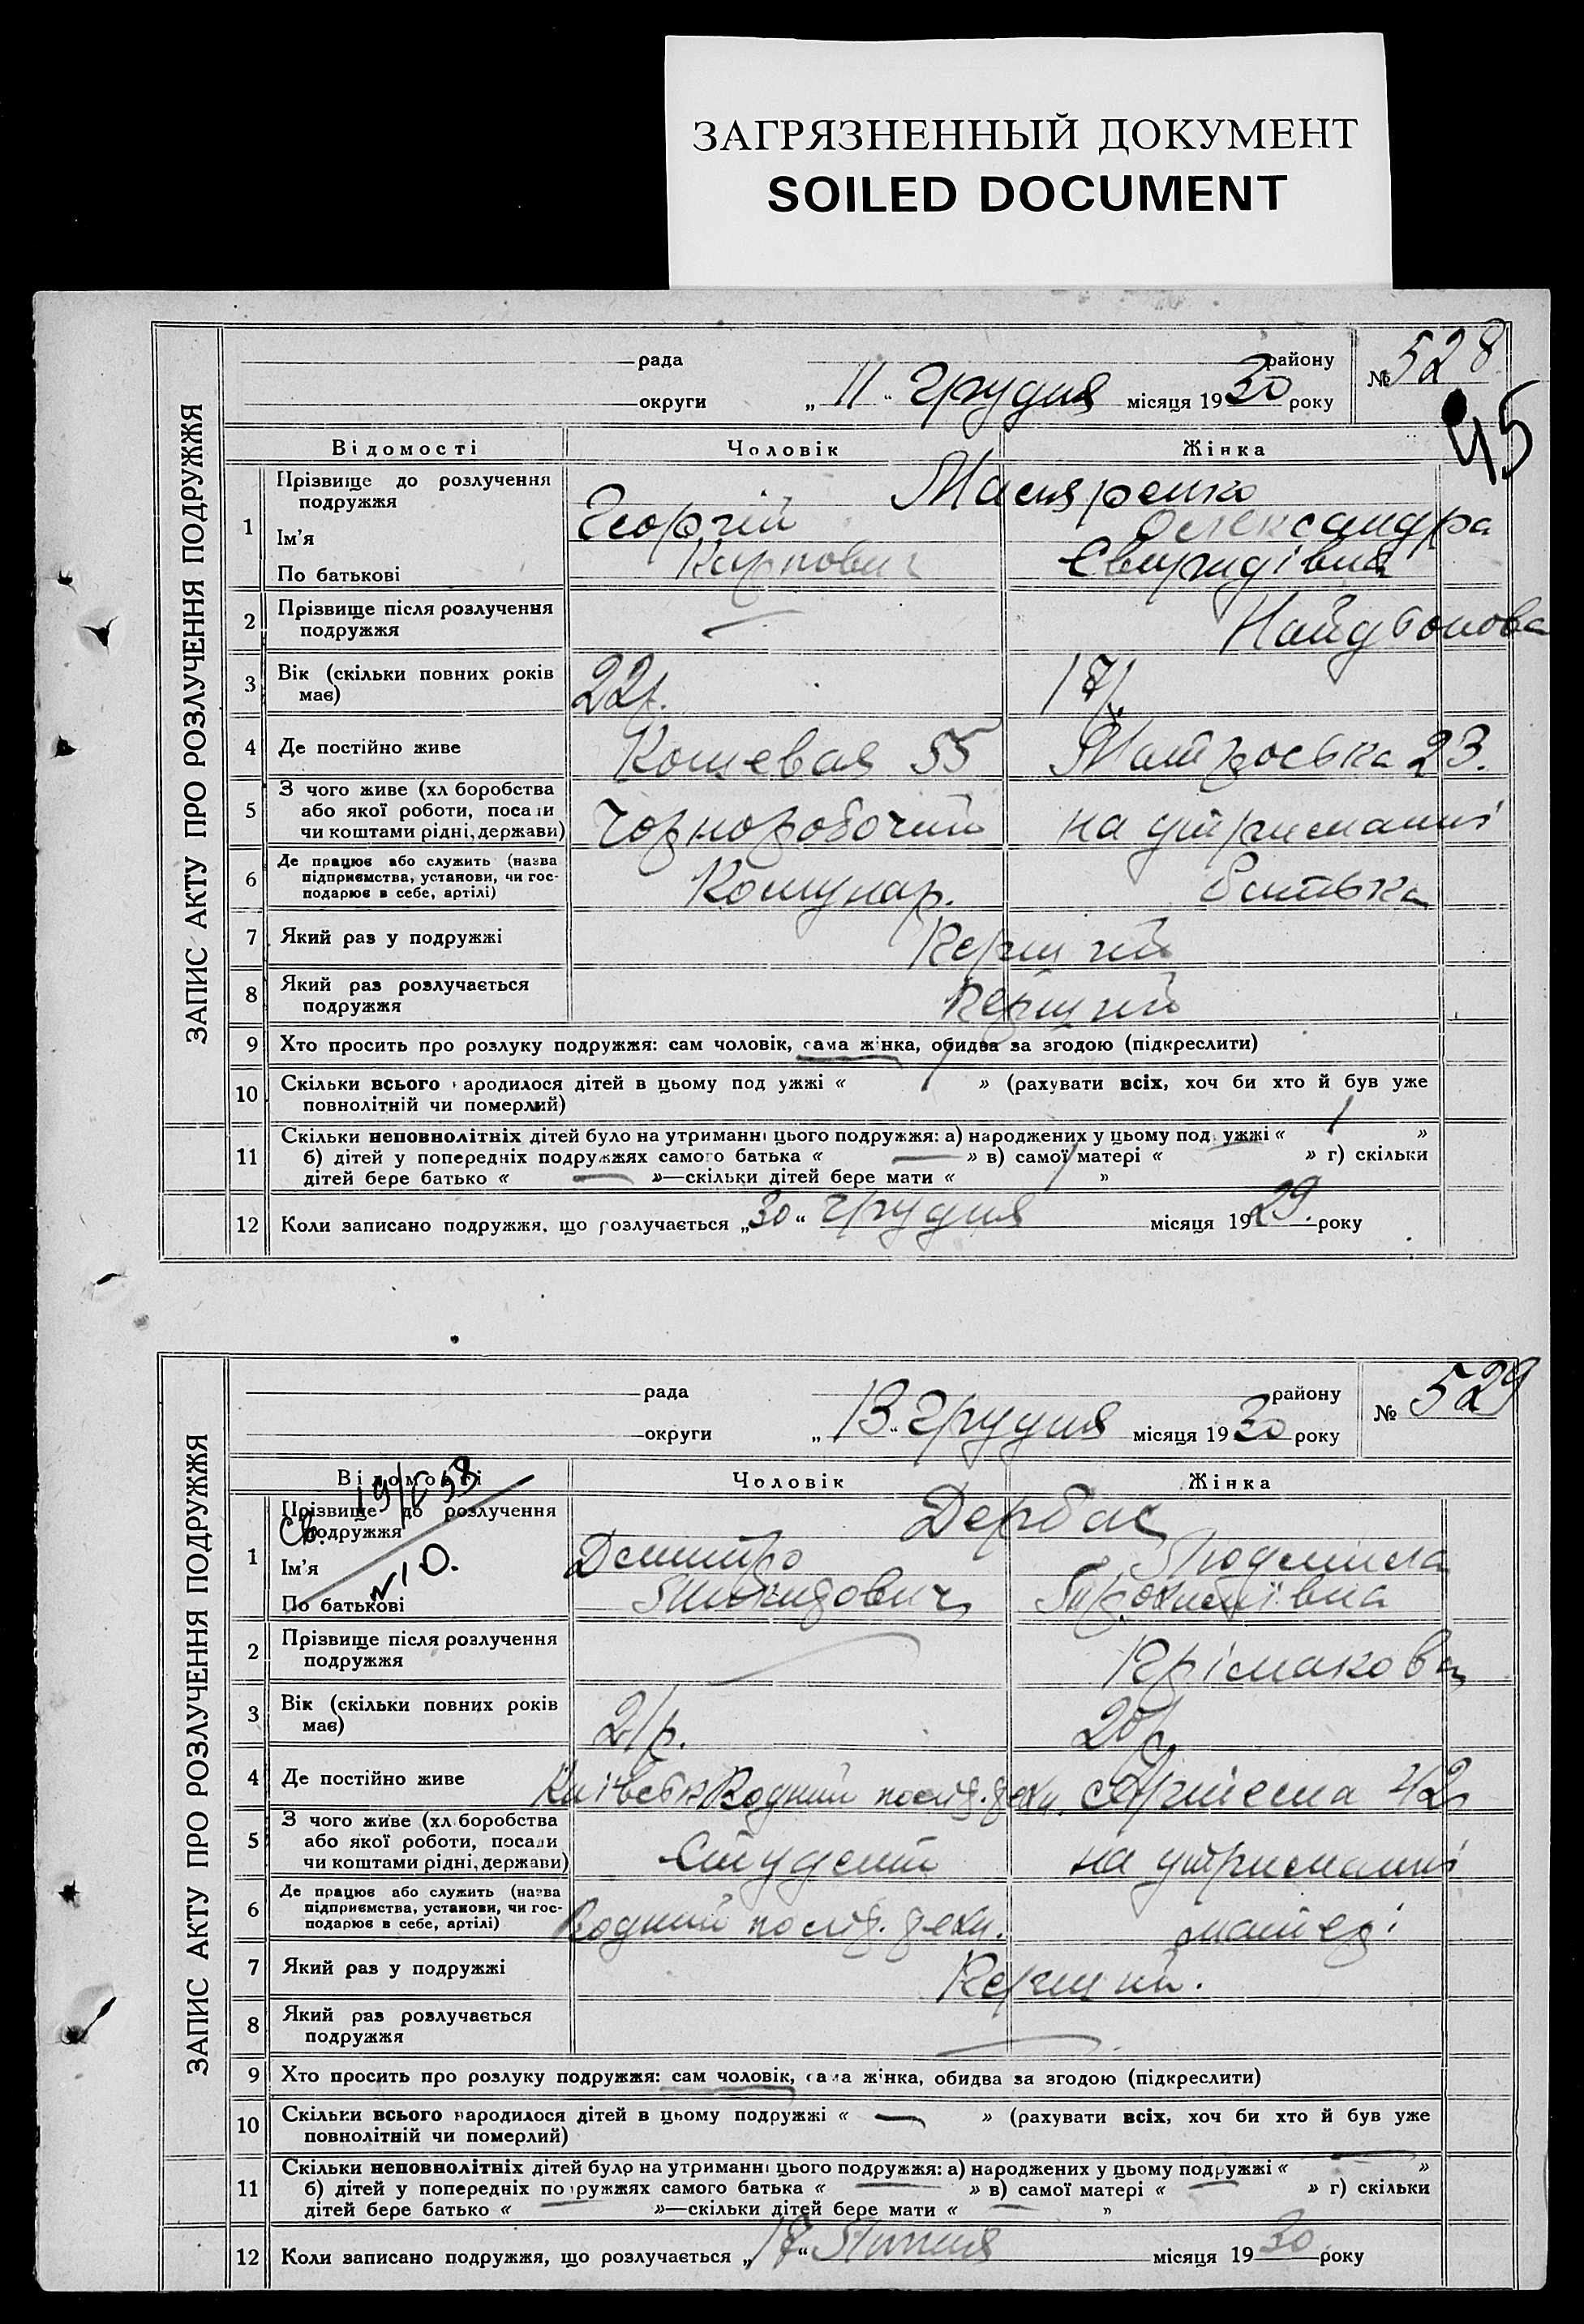 ЗАГРЯЗНЕННЫЙ ДОКУМЕНТ
SOILED DOCUMENT
ЗАПИС АКТУ ПРО РОЗЛУЧЕННЯ ПОДРУЖЖЯ
рада району
№ 528
округи „ 11 “ грудня місяця 1930 року
45
Відомості Чоловік Жінка
1 Прізвище до розлучення подружжя
Ім'я Георгій Олександра
По батькові Карпович Свиридівна
2 Прізвище після розлучення подружжя —
3 Вік (скільки повних років має) 22р. 17р.
4 Де постійно живе 55 23.
5 З чого живе (хл боробства або якої роботи, посади чи коштами рідні, держави) Чорноробочий на утриманні
6 Де працює або служить (назва підприємства, установи, чи господарює в себе, артілі) Комунар. батька
7 Який раз у подружжі Перший
8 Який раз розлучається подружжя Перший
9 Хто просить про розлуку подружжя: сам чоловік, сама жінка, обидва за згодою (підкреслити)
10 Скільки всього народилося дітей в цьому подружжі « 1 » (рахувати всіх, хоч би хто й був уже
повнолітній чи померлий)
11 Скільки неповнолітніх дітей було на утриманні цього подружжя: а) народжених у цьому подружжі « 1 »
б) дітей у попередніх подружжях самого батька « — » в) самої матері « » г) скільки
дітей бере батько « — »—скільки дітей бере мати « 1 »
12 Коли записано подружжя, що розлучається „30“ грудня місяця 1929. року
ЗАПИС АКТУ ПРО РОЗЛУЧЕННЯ ПОДРУЖЖЯ
рада району
№ 529
округи „ 13 “ грудня місяця 1930 року
Відомості Чоловік Жінка
1 Прізвище до розлучення подружжя Дербас
Ім'я Дмитро Людмила
По батькові
2 Прізвище після розлучення подружжя —
3 Вік (скільки повних років має) 21р. 20р.
4 Де постійно живе Водний 42
5 З чого живе (хл боробства або якої роботи, посади чи коштами рідні, держави) Студент на утриманні
6 Де працює або служить (назва підприємства, установи, чи господарює в себе, артілі) Водний матері
7 Який раз у подружжі Перший.
8 Який раз розлучається подружжя —
9 Хто просить про розлуку подружжя: сам чоловік, сама жінка, обидва за згодою (підкреслити)
10 Скільки всього народилося дітей в цьому подружжі « — » (рахувати всіх, хоч би хто й був уже
повнолітній чи померлий)
11 Скільки неповнолітніх дітей було на утриманні цього подружжя: а) народжених у цьому подружжі « — »
б) дітей у попередніх подружжях самого батька « — » в) самої матері « — » г) скільки
дітей бере батько « — »—скільки дітей бере мати « — »
12 Коли записано подружжя, що розлучається „17“ Липня місяця 1930 року